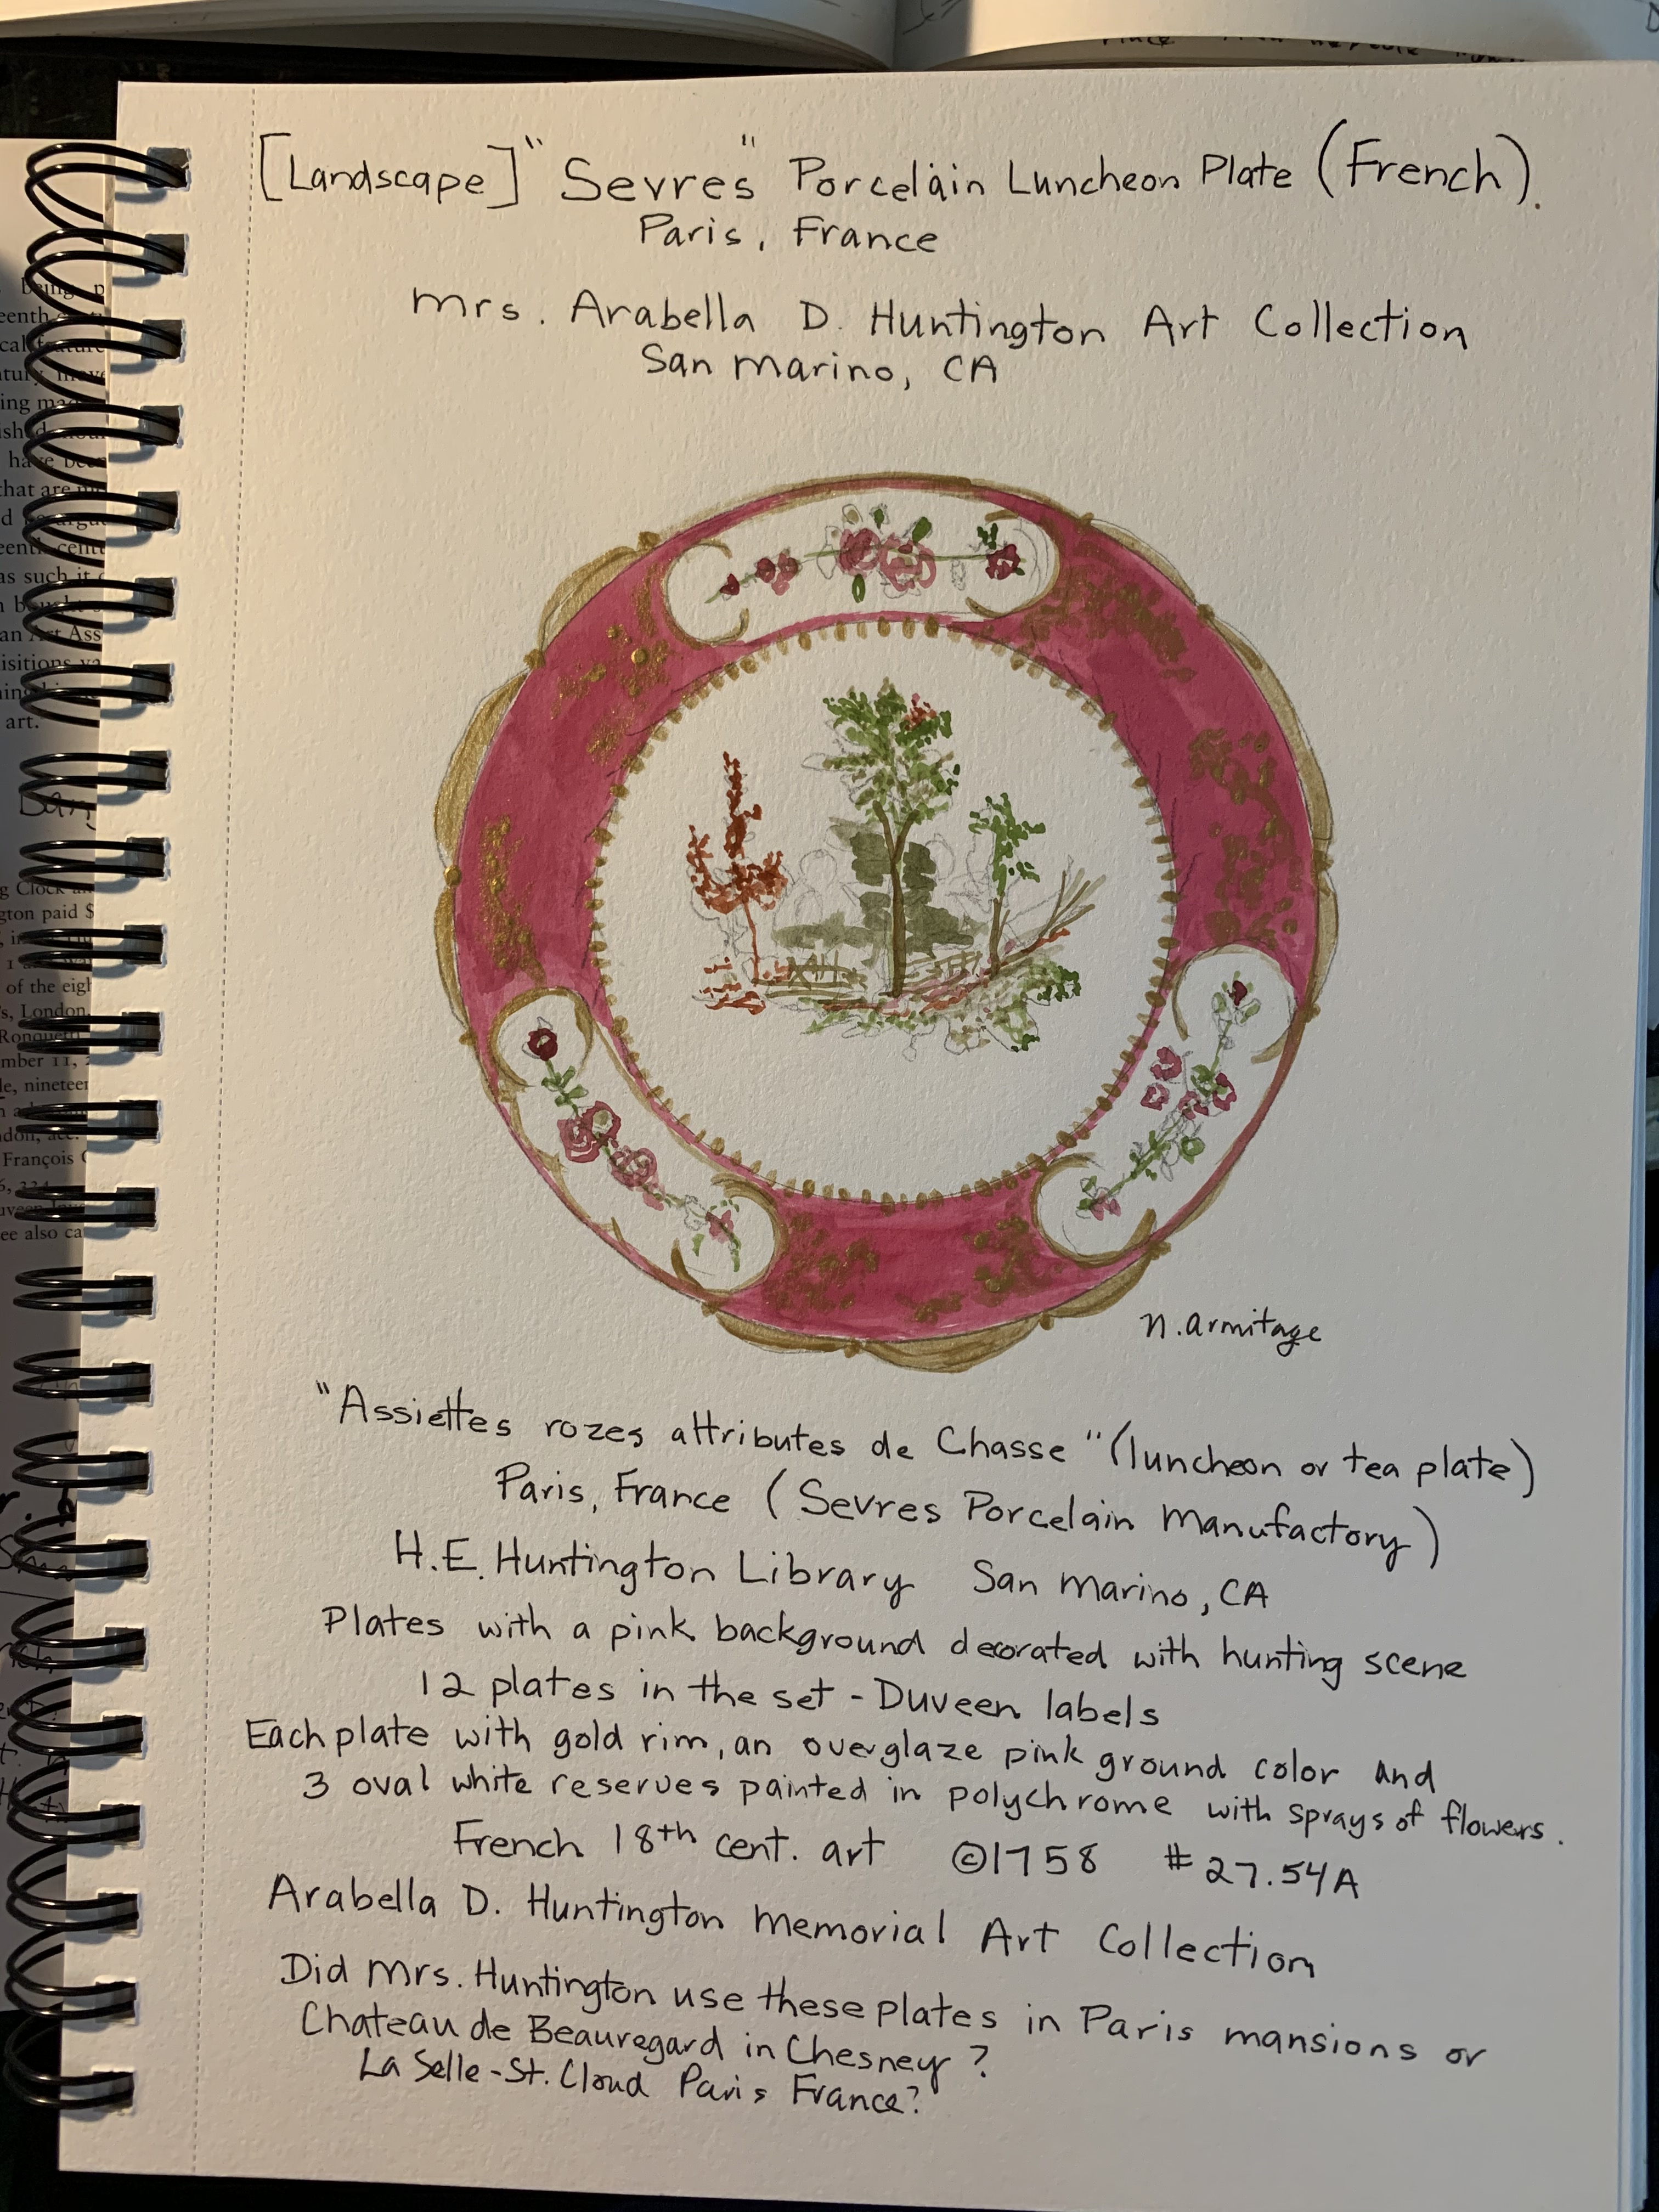 [Landscape] "Sevres" Porcelain Luncheon Plate (French).
Paris, France
Mrs. Arabella D. Huntington Art Collection
San Marino, CA
N. Armitage
"Assiettes rozes attributes de Chasse" (luncheon or tea plate)
Paris, France (Sevres Porcelain Manufactory)
H.E. Huntington Library San Marino, CA
Plates with a pink background decorated with hunting scene
12 plates in the set - Duveen labels
Each plate with gold rim, an overglaze pink ground color and
3 oval white reserves painted in polychrome with sprays of flowers.
French 18th cent. art ©1758 #27.54A
Arabella D. Huntington Memorial Art Collection
Did Mrs. Huntington use these plates in Paris mansions or
Chateau de Beauregard in Chesney?
La Selle-St. Cloud Paris France?
being p
art.
an Art Ass
that are
of the eigh
s, London,
mber 11,
François
ee also ca